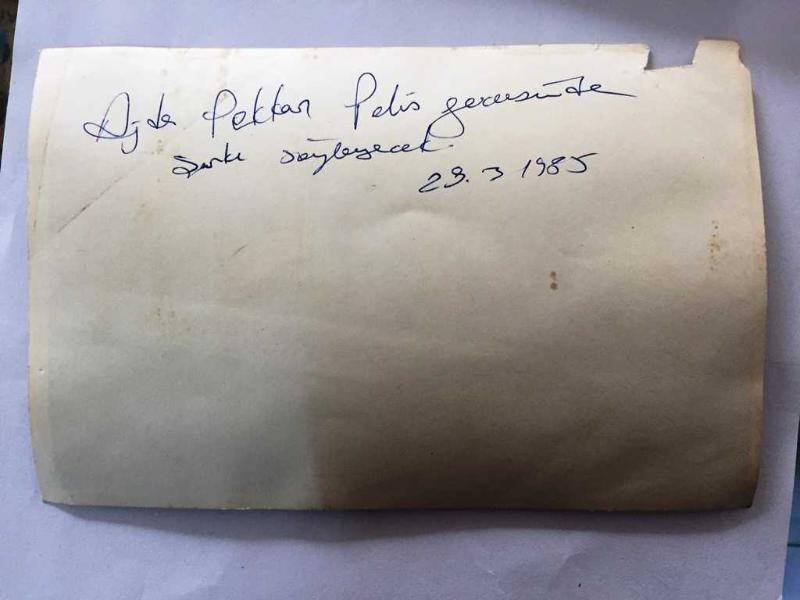 Ajda Pekkan Polis gecesinde
Şarkı söyleyecek
29.3 1985